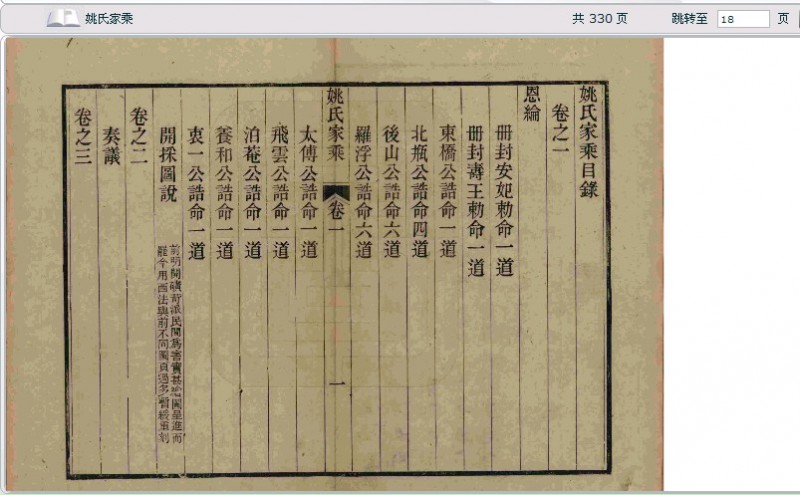 姚氏家乘
共 330 页
跳转至 18 页
姚氏家乘目錄
卷之一
恩綸
冊封安妃勅命一道
冊封壽王勅命一道
東橋公誥命一道
北瓶公誥命四道
後山公誥命六道
羅浮公誥命六道
姚氏家乘
卷一
一
太傅公誥命一道
飛雲公誥命一道
泊菴公誥命一道
養和公誥命一道
衷一公誥命一道
開採圖說
前明開礦苛派民間爲害實甚
圖呈進而
罷今用西法與前不同圖頁過多暫緩重刻
卷之二
奏議
卷之三